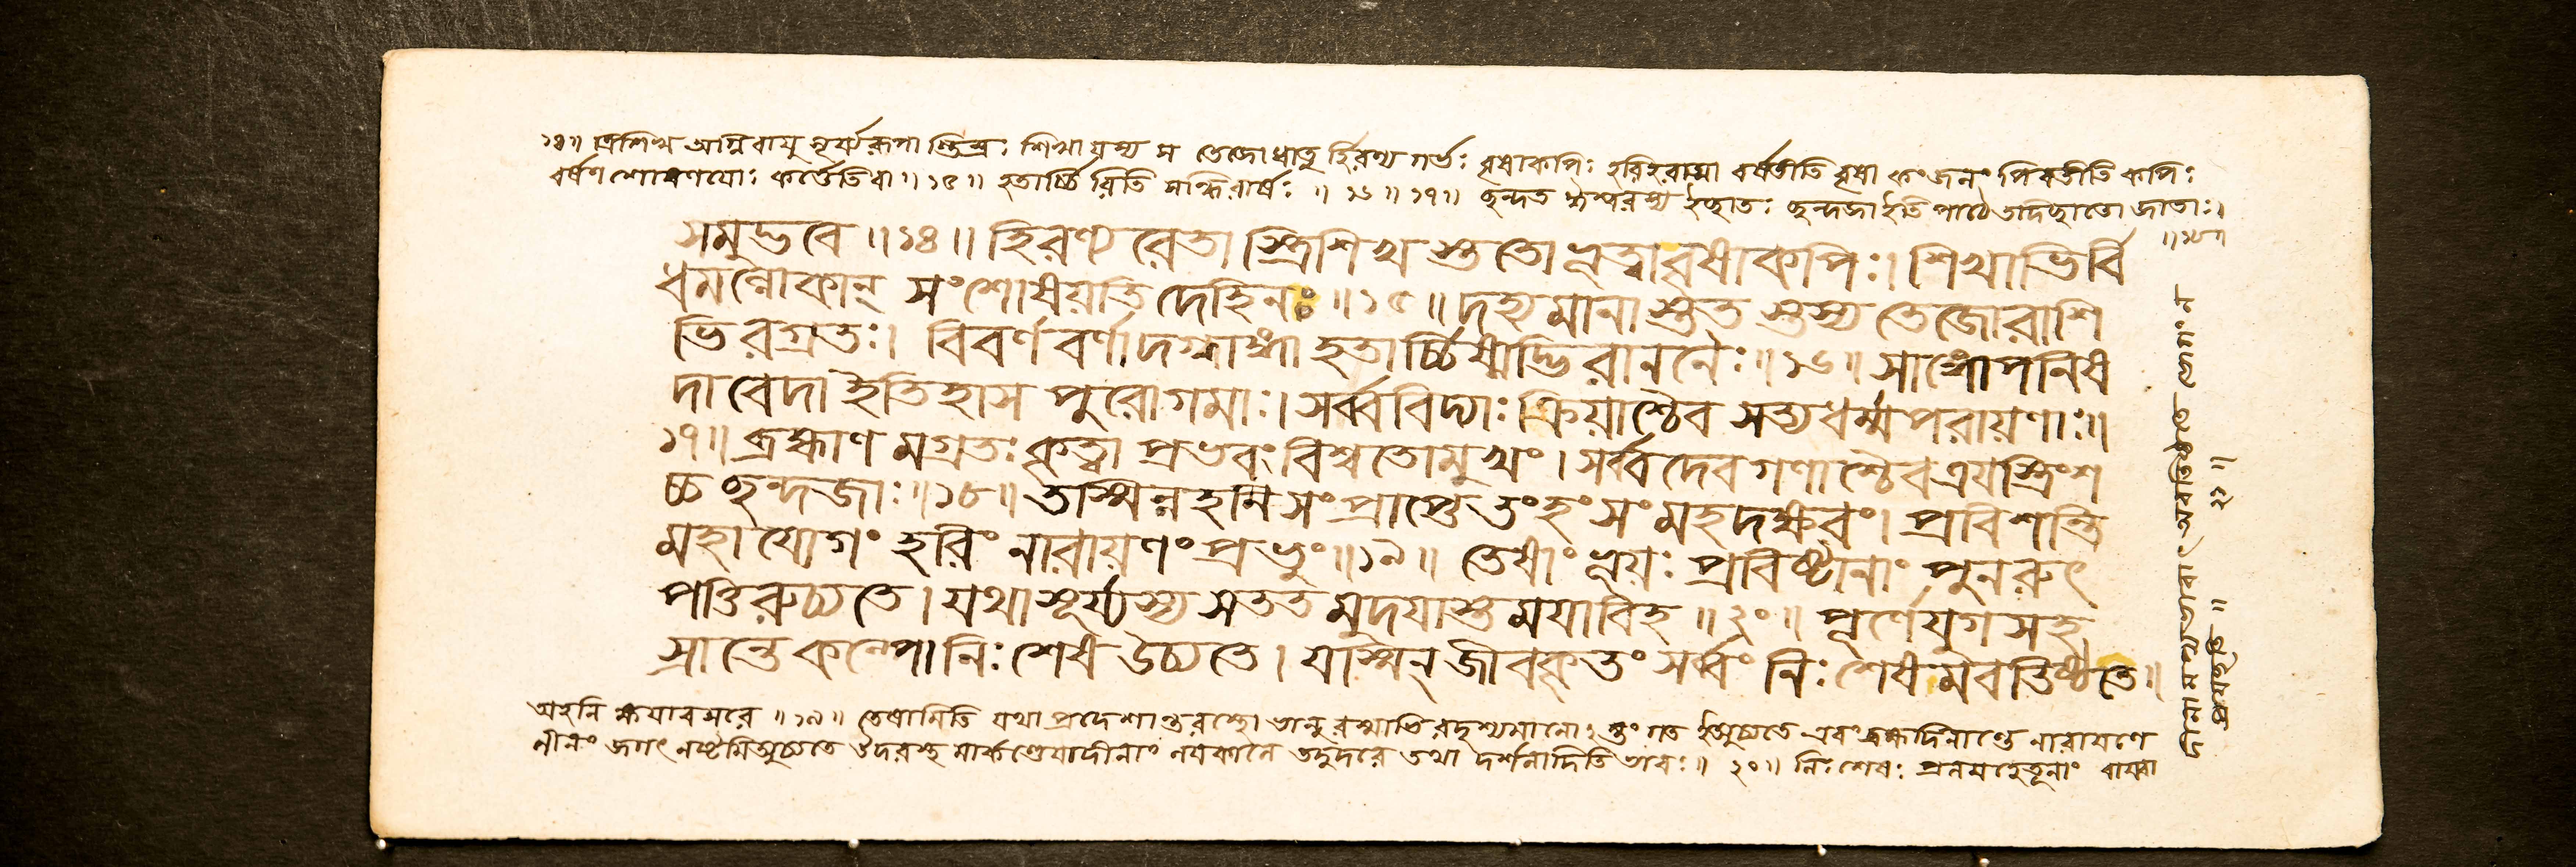 ১৪॥ ত্রিশিখ অগ্নিবায়ু সূর্য্যরূপা স্তিস্রঃ শিখা যস্য স তেজোধাতু র্হিরণ্য গর্ভঃ বৃষাকপিঃ হরিহরাত্মা বর্ষতীতি বৃষা কংজলং পিবতীতি কপিঃ
বর্ষণ শোষণযোঃ কর্ত্তেতিবা॥ ১৫॥ হতার্চ্চি রিতি সন্ধিরার্ষঃ ॥ ১৬॥ ১৭॥ ছন্দত ঈশ্বরস্য ইচ্ছাতঃ ছন্দজা ইতি পাঠে তদিচ্ছাতো জাতাঃ।
॥১৮॥
সমুদ্ভবে ॥১৪॥ হিরণ্য রেতা স্ত্রিশিখ স্ততো ভূত্বাবৃষাকপিঃ। শিখাভির্বি
ধমল্লোকান্ সংশোষয়তি দেহিনঃ॥১৫॥ দহ্যমানা স্তত স্তস্য তেজোরাশি
ভিরগ্রতঃ। বিবর্ণ বর্ণা দগ্ধাঙ্গা হতার্চ্চিষ্মদ্ভিরাননৈঃ॥১৬॥ সাঙ্গোপনিষ
দা বেদা ইতিহাস পুরোগমাঃ। সর্ব্ববিদ্যাঃ ক্রিয়াশ্চৈব সত্যধর্ম্মপরায়ণাঃ॥
১৭॥ ব্রহ্মাণ মগ্রতঃ কৃত্বা প্রভবং বিশ্বতোমুখং। সর্ব্বদেবগণাশ্চৈব ত্রযস্ত্রিংশ
চ্চ ছন্দজাঃ॥১৮॥ তস্মিন্নহনি সংপ্রাপ্তে তংহংসং মহদক্ষরং। প্রবিশন্তি
মহা যোগং হরিং নারায়ণং প্রভুং॥১৯॥ তেষাং ভূয়ঃ প্রবিষ্টানাং পুনরুৎ
পত্তিরুচ্যতে। যথা সূর্য্যস্য সতত মুদযাস্তমযাবিহ ॥২০॥ পূর্ণেযুগ সহ
স্রান্তে কল্পো নিঃশেষ উচ্যতে। যস্মিন্ জীবকৃতং সর্ব্বং নিঃশেষ মবতিষ্ঠতে॥
অহনি ক্ষযাবসরে ॥১৯॥ তেষামিতি যথা প্রদেশান্তরস্থো ভানু রস্মাভি রদৃশ্যমানো২স্তং গত ইত্যুচ্যতে এবংব্রহ্মদিনান্তে নারাযণে
লীনং জগৎ নষ্টমিত্যুচ্যতে উদরস্থ মার্কণ্ডেযাদীনাং লযকালে তদুদরে তথা দর্শনাদিতি ভাবঃ॥ ২০॥ নিঃশেষঃ প্রলযহেতূনাং
২১॥